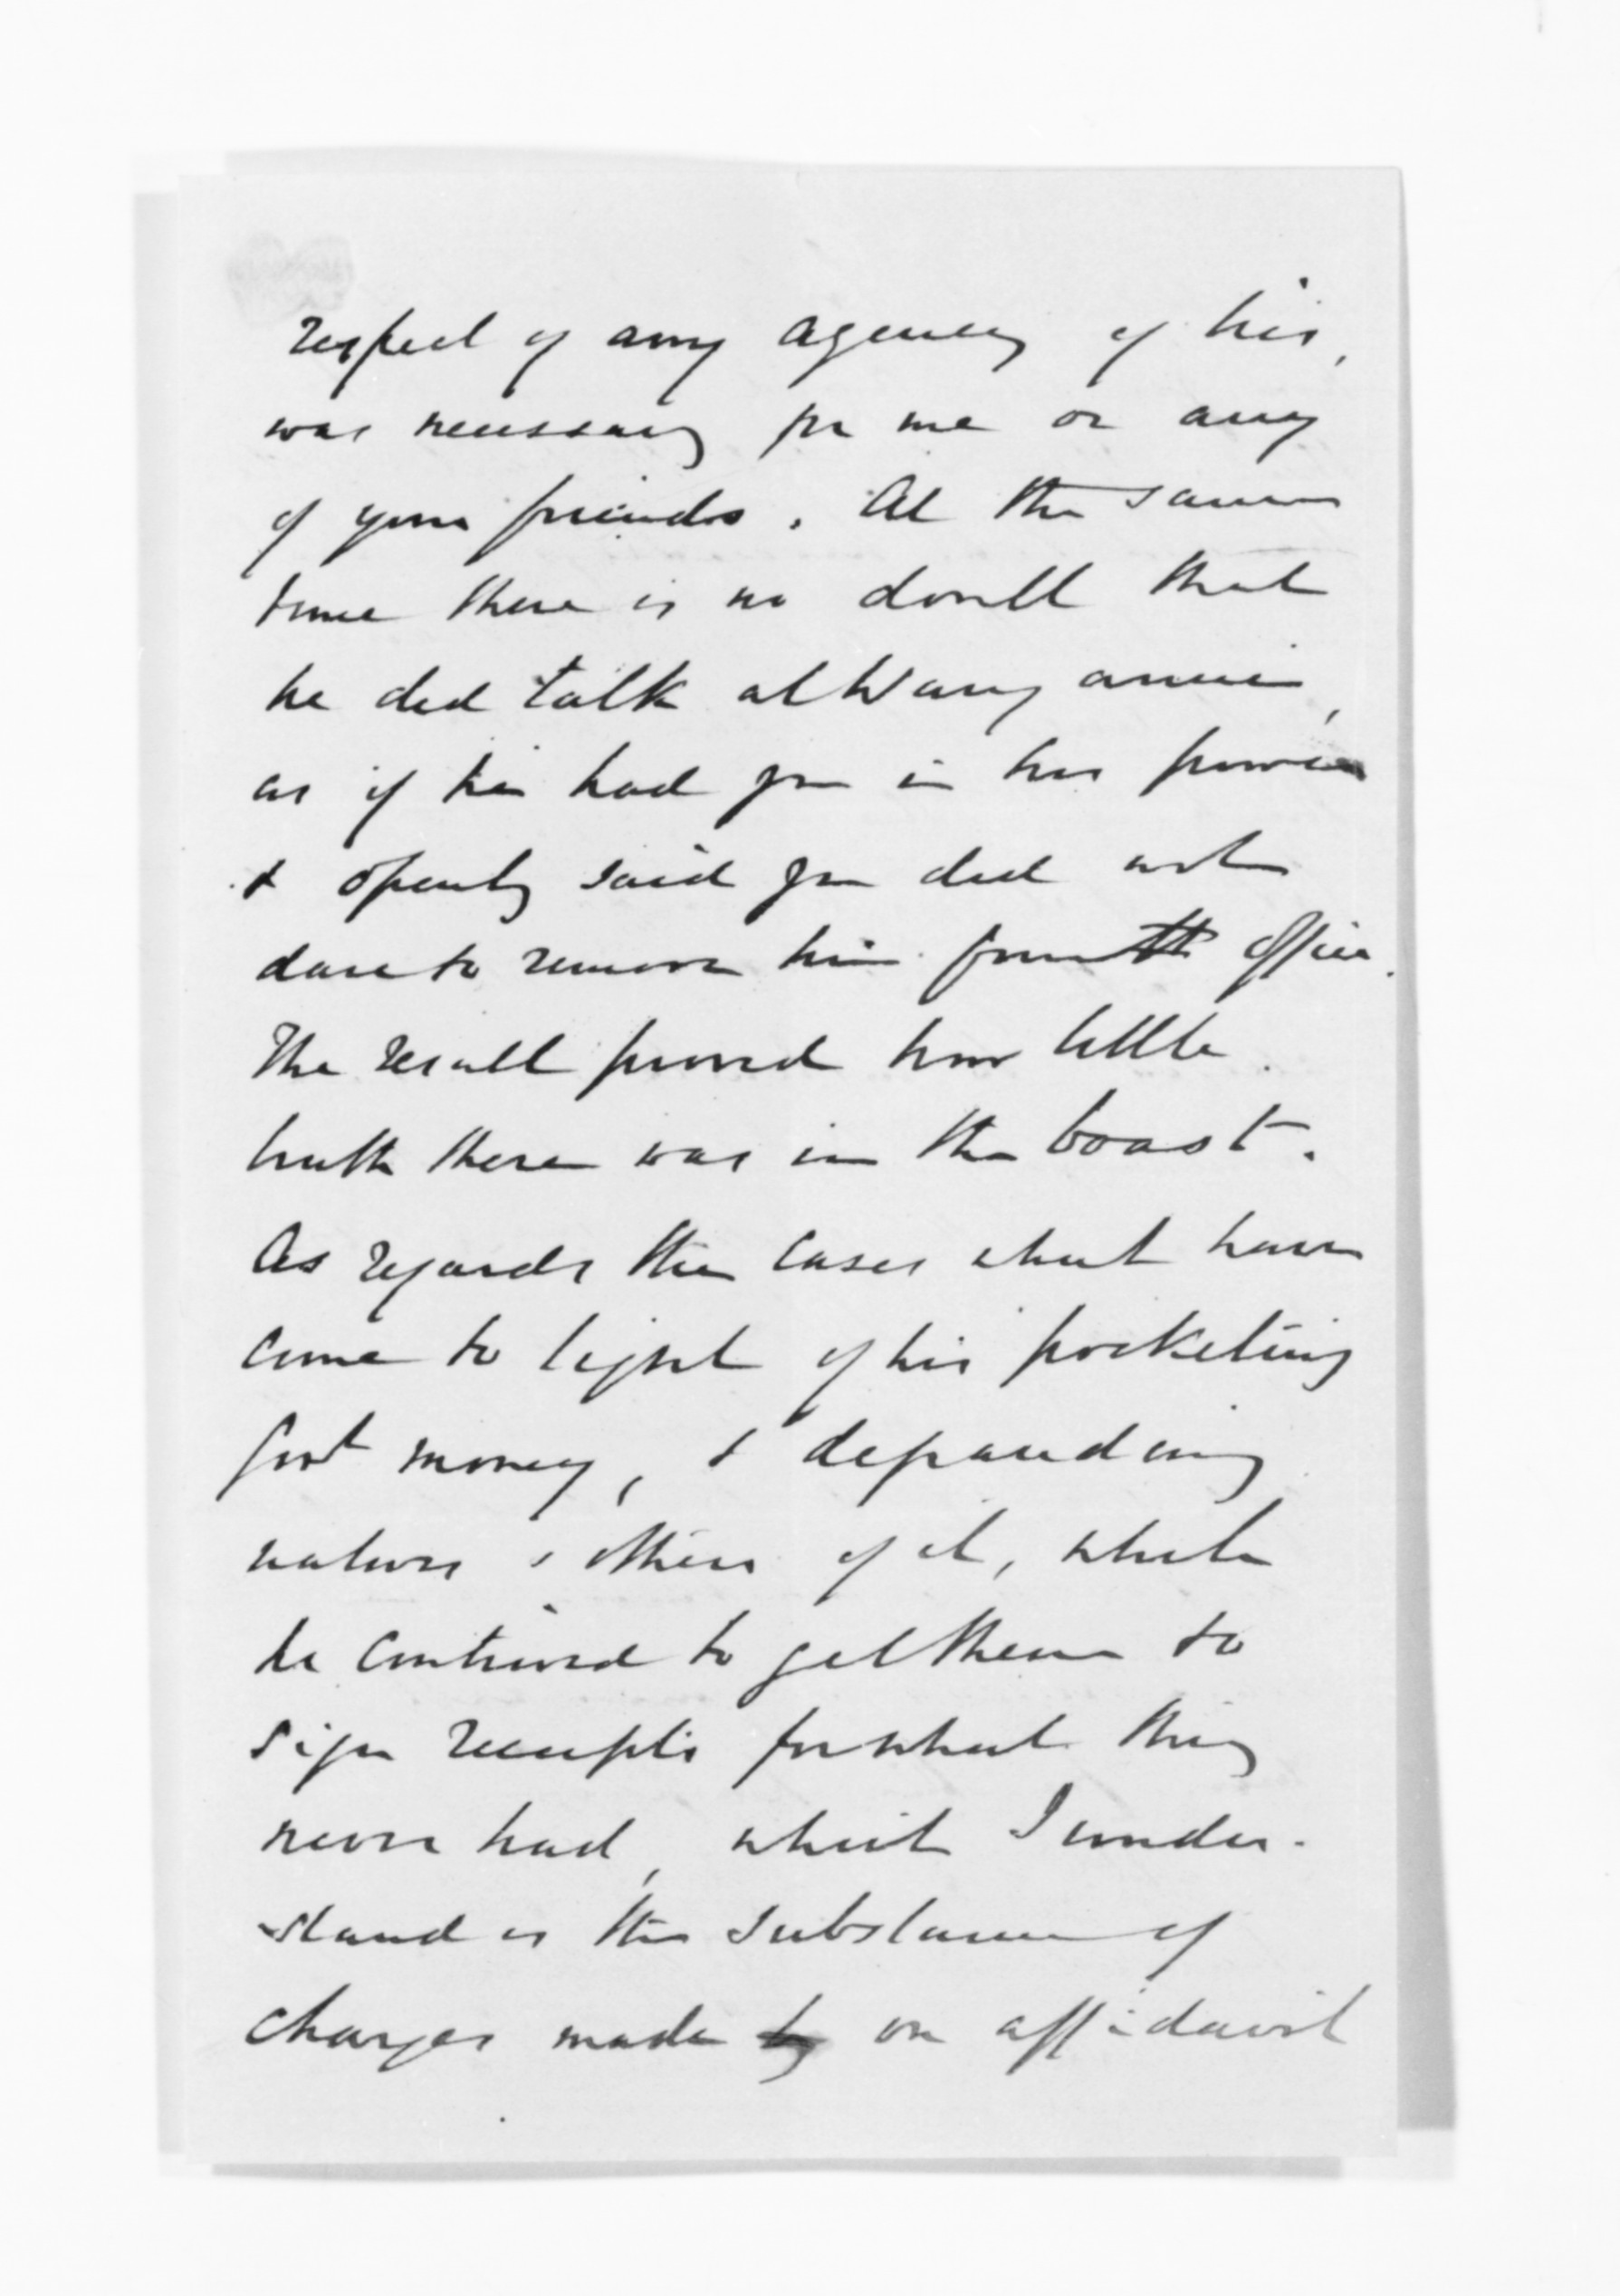 respect of any agency of his,
was necessary for me or any
of your friends. At the same
time there is no doubt that
he did talk at Wanganui,
as if he had you in his power
& openly said you did not
dare to remove him from the Office.
The result proved how little
truth there was in the boast.
As regards the cases which have
come to light of his pocketing
Govt money, & defrauding
natives & others of it, while
he contrived to get them to
sign receipts for what they
never had, which I under-
-stand is the substance of
charges made by on affidavit